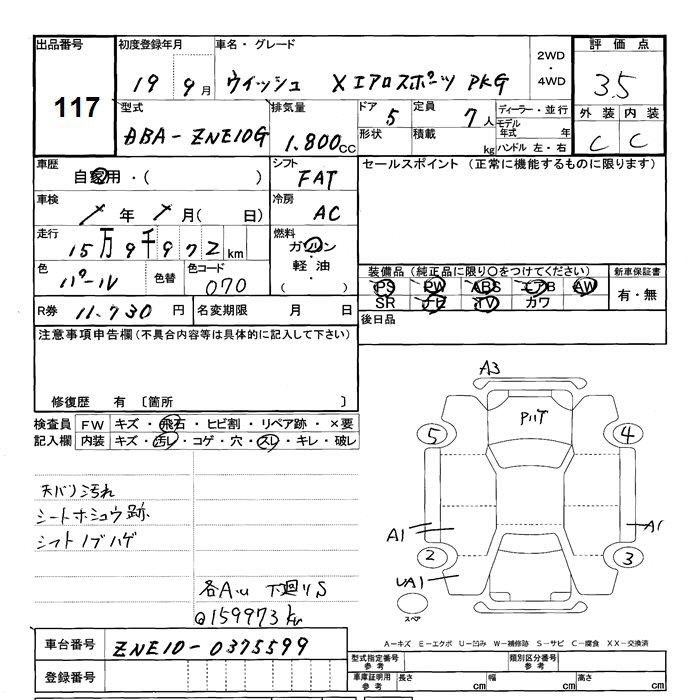 出品番号 初度登録年月 車名・グレード 2WD・4WD 評価点
117 19 9月 ウィッシュ X エアロスポーツ PKG 3.5
型式 排気量 ドア 定員 ディーラー・並行 外装 内装
ABA-ZNE10G 1.800cc 5 7人 モデル年式 年 C C
形状 積載 kg ハンドル 左・右
車歴 自家用・( ) シフト FAT セールスポイント (正常に機能するものに限ります)
車検 / 年 / 月( 日) 冷房 AC
走行 15万9千972km 燃料 ガソリン・軽油・( )
色 パール 色替 色コード 070 装備品(純正品に限り○をつけてください) 新車保証書
PS PW ABS エアB AW 有・無
SR ナビ TV カワ
R券 11.730円 名変期限 月 日 後日品
注意事項申告欄(不具合内容等は具体的に記入して下さい)
修復歴 有 〔箇所 〕
検査員記入欄 FW キズ・飛石・ヒビ割・リペア跡・×要
内装 キズ・汚レ・コゲ・穴・スレ・キレ・破レ
天バリ汚れ
シートホシュウ跡
シフトノブハゲ
各A.U 下廻りS
@159973km
A3
PハT
5 4
A1 A1
2 3
UA1
スペア
車台番号 ZNE10-0375599
A-キズ E-エクボ U-凹み W-補修跡 S-サビ C-腐食 XX-交換済
登録番号
型式指定番号参考 類別区分番号参考
車庫証明用参考 長さ cm 幅 cm 高さ cm